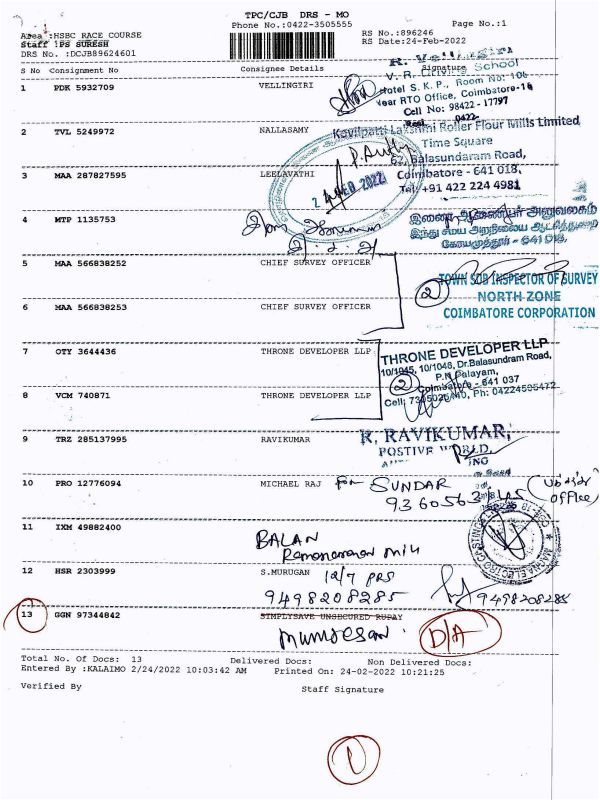 TPC/CJB DRS - MO
Phone No.:0422-3505555
Page No.:1
Area :HSBC RACE COURSE
Staff :PS SURESH
DRS No. :DCJB89624601
RS No.:896246
RS Date:24-Feb-2022
S No Consignment No Consignee Details Signature
R. Vellingiri
V. R. Driving School
Hotel S. K. P., Room No: 106
Near RTO Office, Coimbatore-18
Cell No: 98422 - 17797
1 PDK 5932709 VELLINGIRI
0422
2 TVL 5249972 NALLASAMY
Kovilpatti Lakshmi Roller Flour Mills Limited
Time Square
62, Balasundaram Road,
Coimbatore - 641 018.
Tel: +91 422 224 4981
3 MAA 287827595 LEELAVATHI
24 FEB 2022
4 MTP 1135753
இணை ஆணையர் அலுவலகம்
இந்து சமய அறநிலைய ஆட்சித்துறை
கோயமுத்தூர் - 641 018.
5 MAA 566838252 CHIEF SURVEY OFFICER
2
TOWN SUB INSPECTOR OF SURVEY
NORTH ZONE
COIMBATORE CORPORATION
6 MAA 566838253 CHIEF SURVEY OFFICER
7 OTY 3644436 THRONE DEVELOPER LLP
THRONE DEVELOPER LLP
10/1045, 10/1046, Dr.Balasundram Road,
P.N.Palayam,
2
Coimbatore - 641 037
8 VCM 740871 THRONE DEVELOPER LLP
9 TRZ 285137995 RAVIKUMAR
R. RAVIKUMAR,
POSTIVE WORLD,
10 PRO 12776094 MICHAEL RAJ
for SUNDAR
office)
11 IXM 49882400
BALAN
12 HSR 2303999 S.MURUGAN
9498208285
9498208285
13 GGN 97344842 SIMPLYSAVE UNSECURED RUPAY
Murugesan
D/A
Total No. Of Docs: 13 Delivered Docs: Non Delivered Docs:
Entered By :KALAIMO 2/24/2022 10:03:42 AM Printed On: 24-02-2022 10:21:25
Verified By Staff Signature
1